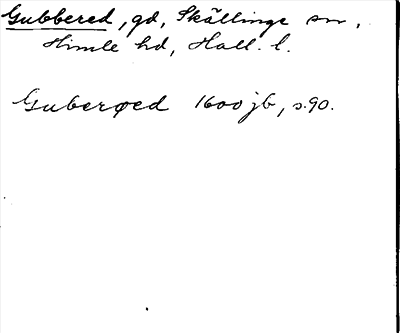 Gubbered, gd, Skällinge sn,
Himle hd, Hall. l.
Guberøed 1600 jb, s.90.